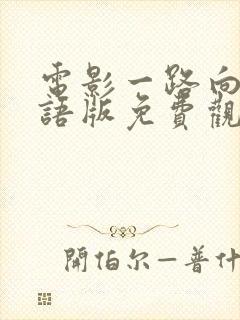 電影一路向
語版免費觀
開伯尔—普什